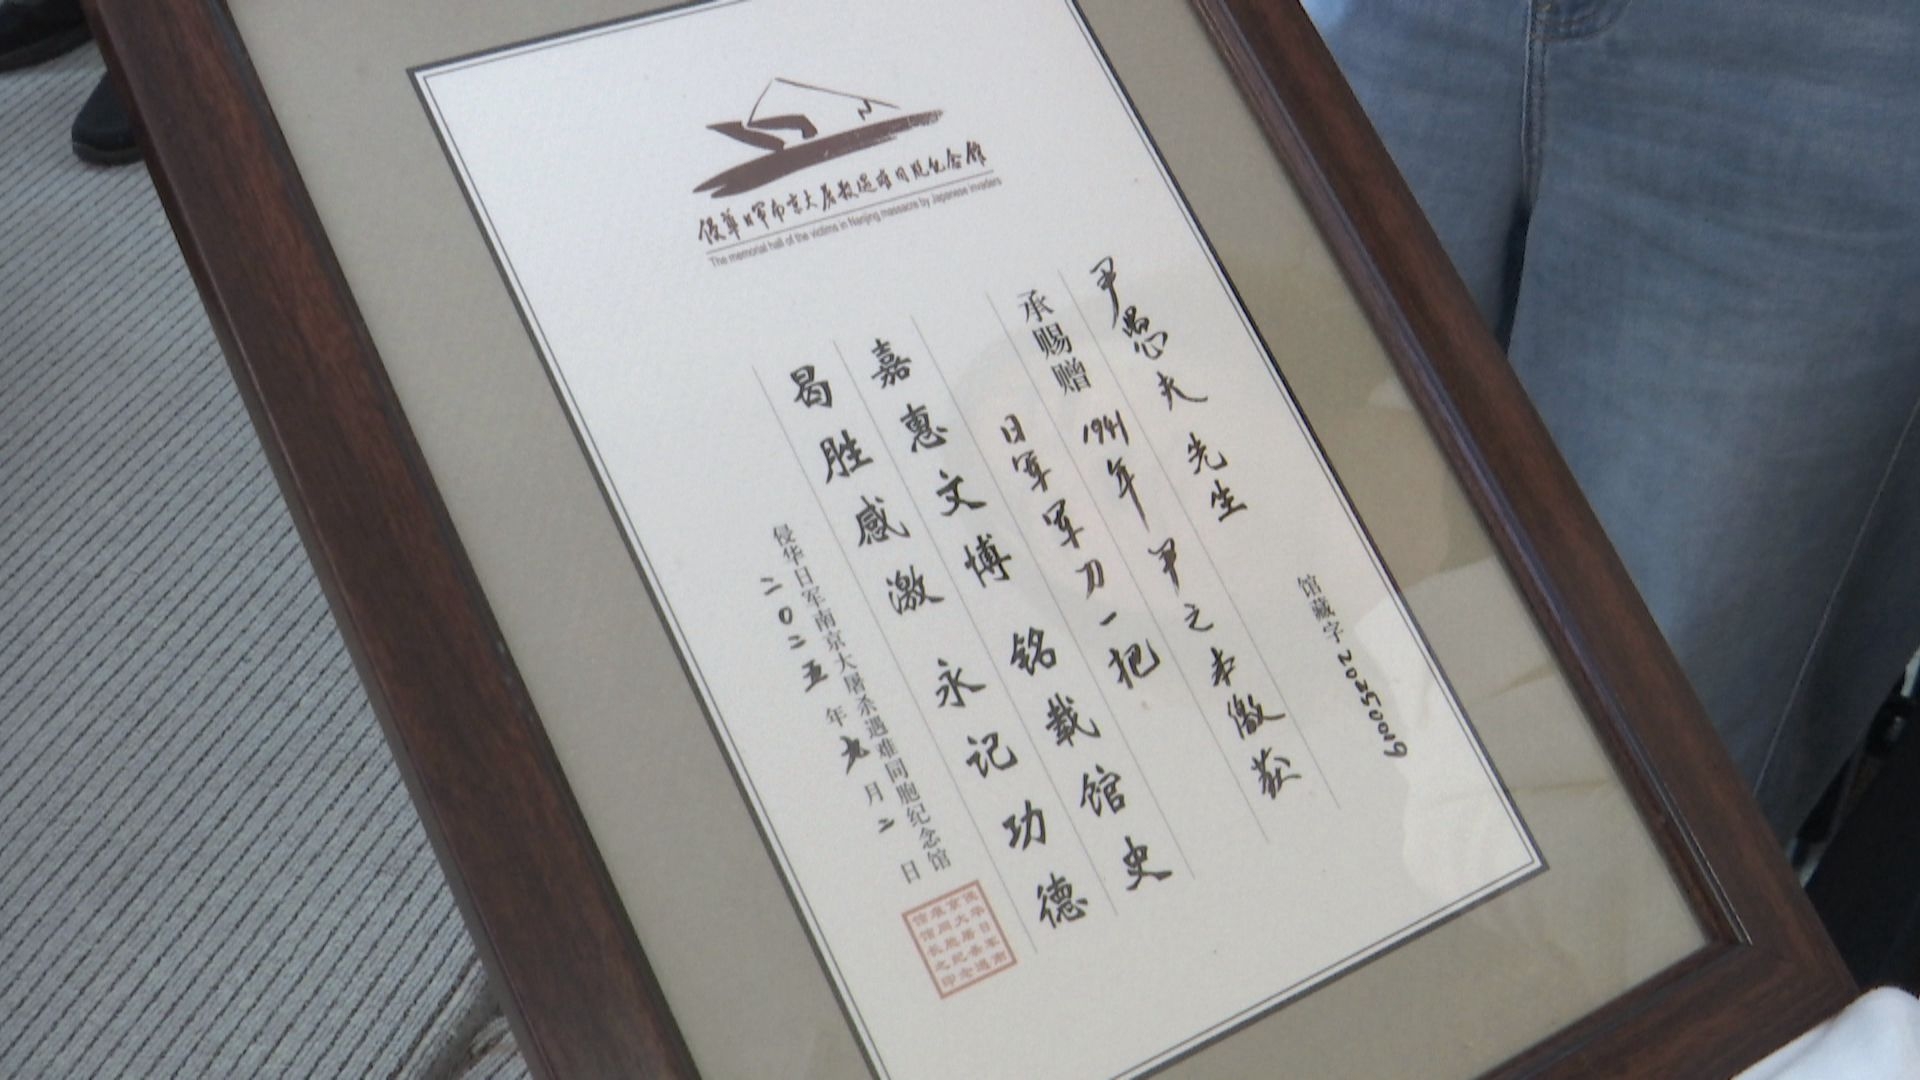 侵华日军南京大屠杀遇难同胞纪念馆
The memorial hall of the victims in Nanjing massacre by Japanese invaders
馆藏字20250019
尹愚夫先生
承赐赠 1941年尹之本缴获
日军军刀一把
嘉惠文博 铭载馆史
曷胜感激 永记功德
侵华日军南京大屠杀遇难同胞纪念馆
二〇二五年九月二日